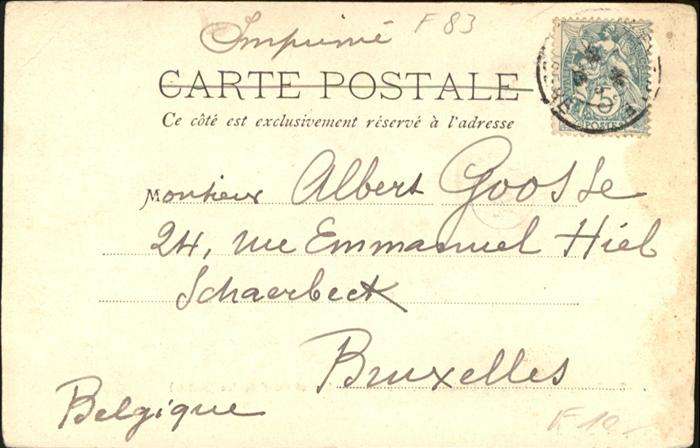 Imprimé F 83
CARTE POSTALE
Ce côté est exclusivement réservé à l'adresse
Monsieur Albert Goosse
24, rue Emmanuel Hiel
Schaerbeck
Bruxelles
Belgique
5
POSTES